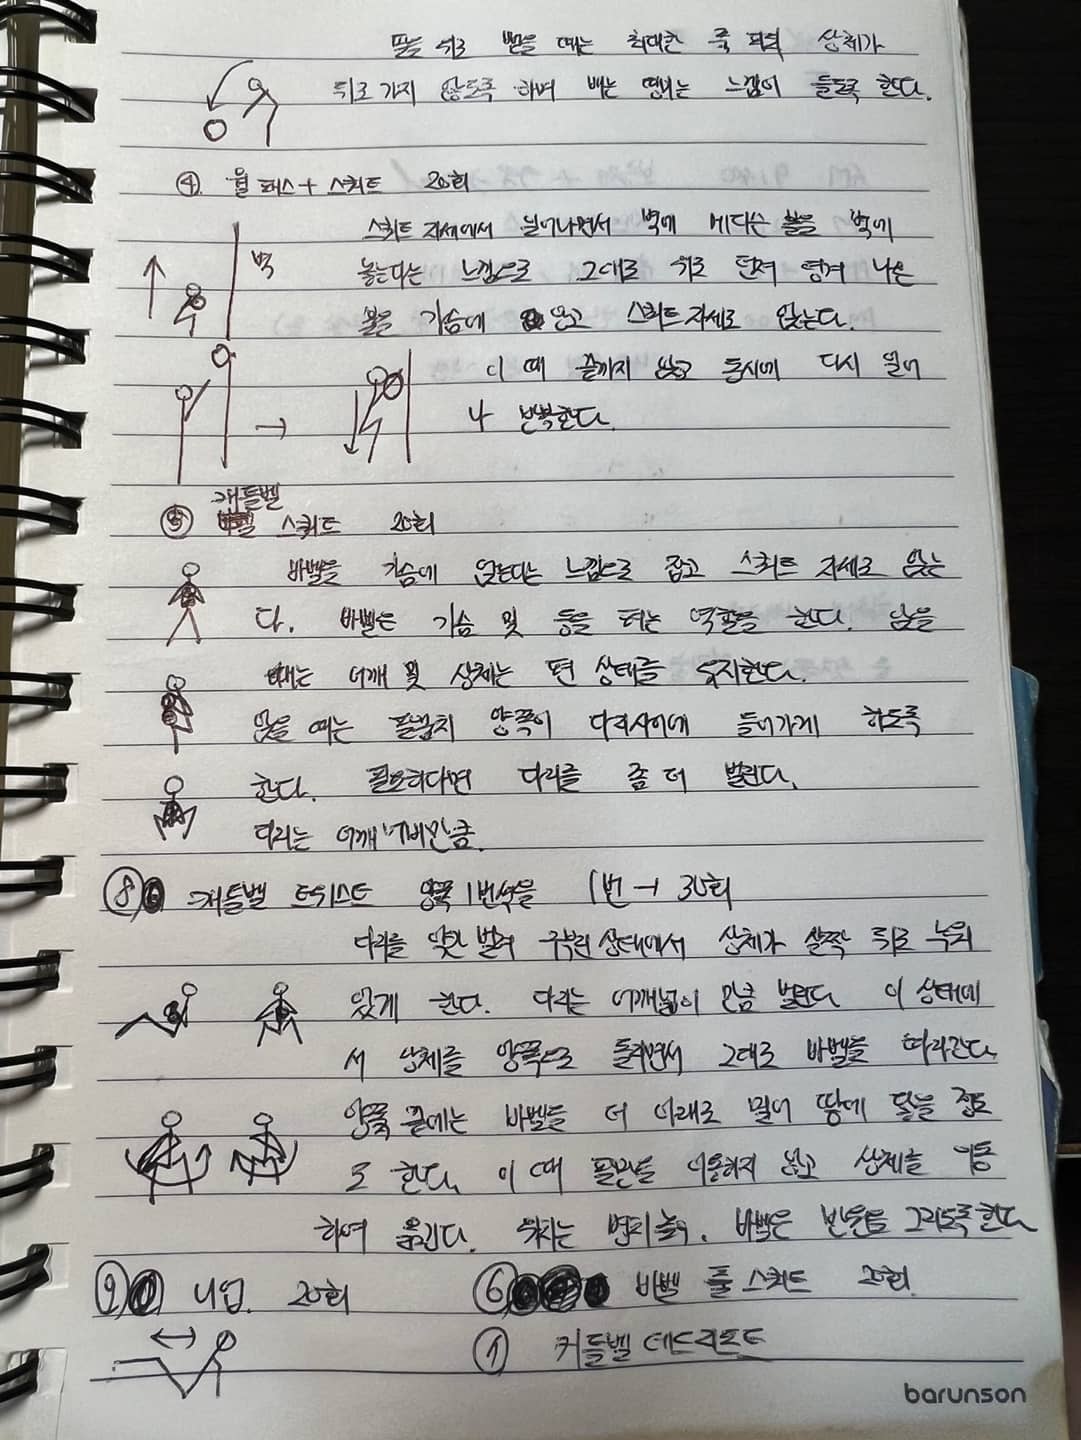 팔을 뒤로 뻗을 때는 최대한 쭉 펴되 상체가
뒤로 가지 않도록 하며 배는 땡기는 느낌이 들도록 한다.
④ 월 패스 + 스쿼트 20회
스쿼트 자세에서 일어나면서 벽에 메다는 볼을 벽에
벽
놓는다는 느낌으로 그대로 위로 던져 튕겨 나온
볼을 가슴에 안고 스쿼트 자세로 앉는다.
이 때 끝까지 앉고 동시에 다시 일어
나 반복한다.
캐틀벨
⑤ 스쿼트 20회
바벨을 가슴에 얹는다는 느낌으로 잡고 스쿼트 자세로 앉는
다. 바벨은 가슴 및 등을 펴는 역할을 한다. 앉을
때는 어깨 및 상체는 편 상태를 유지한다.
앉을 때는 팔꿈치 양쪽이 다리사이에 들어가게 하도록
한다. 필요하다면 다리를 좀 더 벌린다.
다리는 어깨 너비만큼.
⑧ 캐틀벨 트위스트 양쪽 1번씩을 1번 → 30회
다리를 약간 벌려 구부린 상태에서 상체가 살짝 뒤로 누워
있게 한다. 다리는 어깨넓이 만큼 벌린다 이 상태에
서 상체를 양쪽으로 돌리면서 그대로 바벨을 따라간다.
양쪽 끝에는 바벨을 더 아래로 밀어 땅에 닿을 정도
로 한다. 이 때 팔만을 이용하지 않고 상체를 이동
하여 옮긴다. 바벨은 반원을 그리도록 한다
⑨ 니업. 20회 ⑥ 바벨 풀 스쿼트 20회.
① 커틀벨 데드리프트
barunson